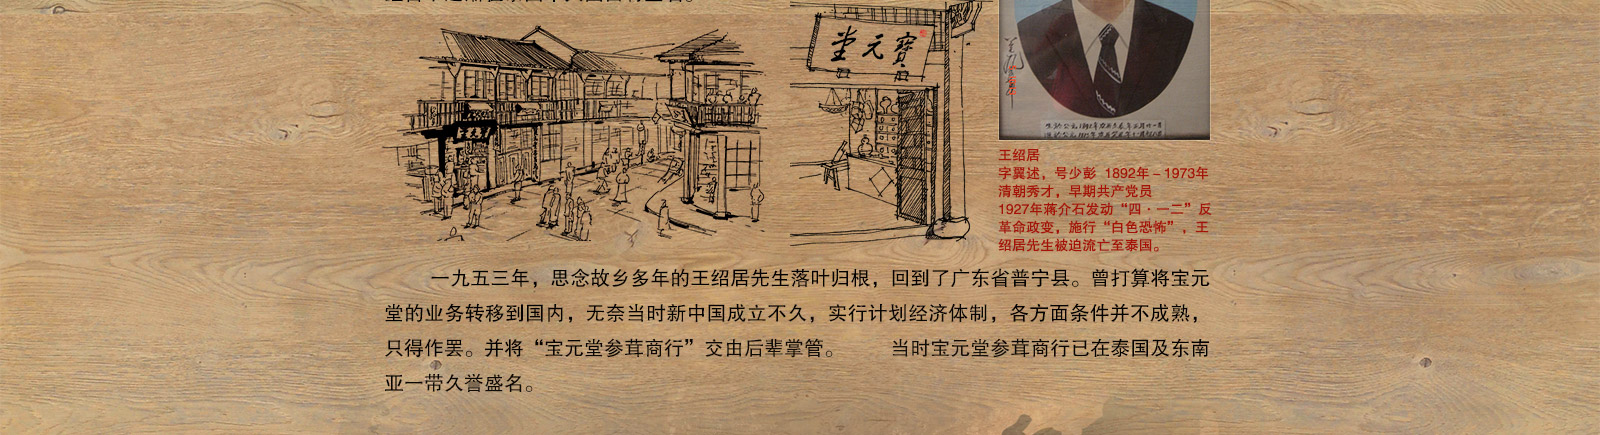 堂元寶
王绍居
字翼述，号少彭 1892年－1973年
清朝秀才，早期共产党员
1927年蒋介石发动“四·一二”反
革命政变，施行“白色恐怖”，王
绍居先生被迫流亡至泰国。
一九五三年，思念故乡多年的王绍居先生落叶归根，回到了广东省普宁县。曾打算将宝元
堂的业务转移到国内，无奈当时新中国成立不久，实行计划经济体制，各方面条件并不成熟，
只得作罢。并将“宝元堂参茸商行”交由后辈掌管。 当时宝元堂参茸商行已在泰国及东南
亚一带久誉盛名。